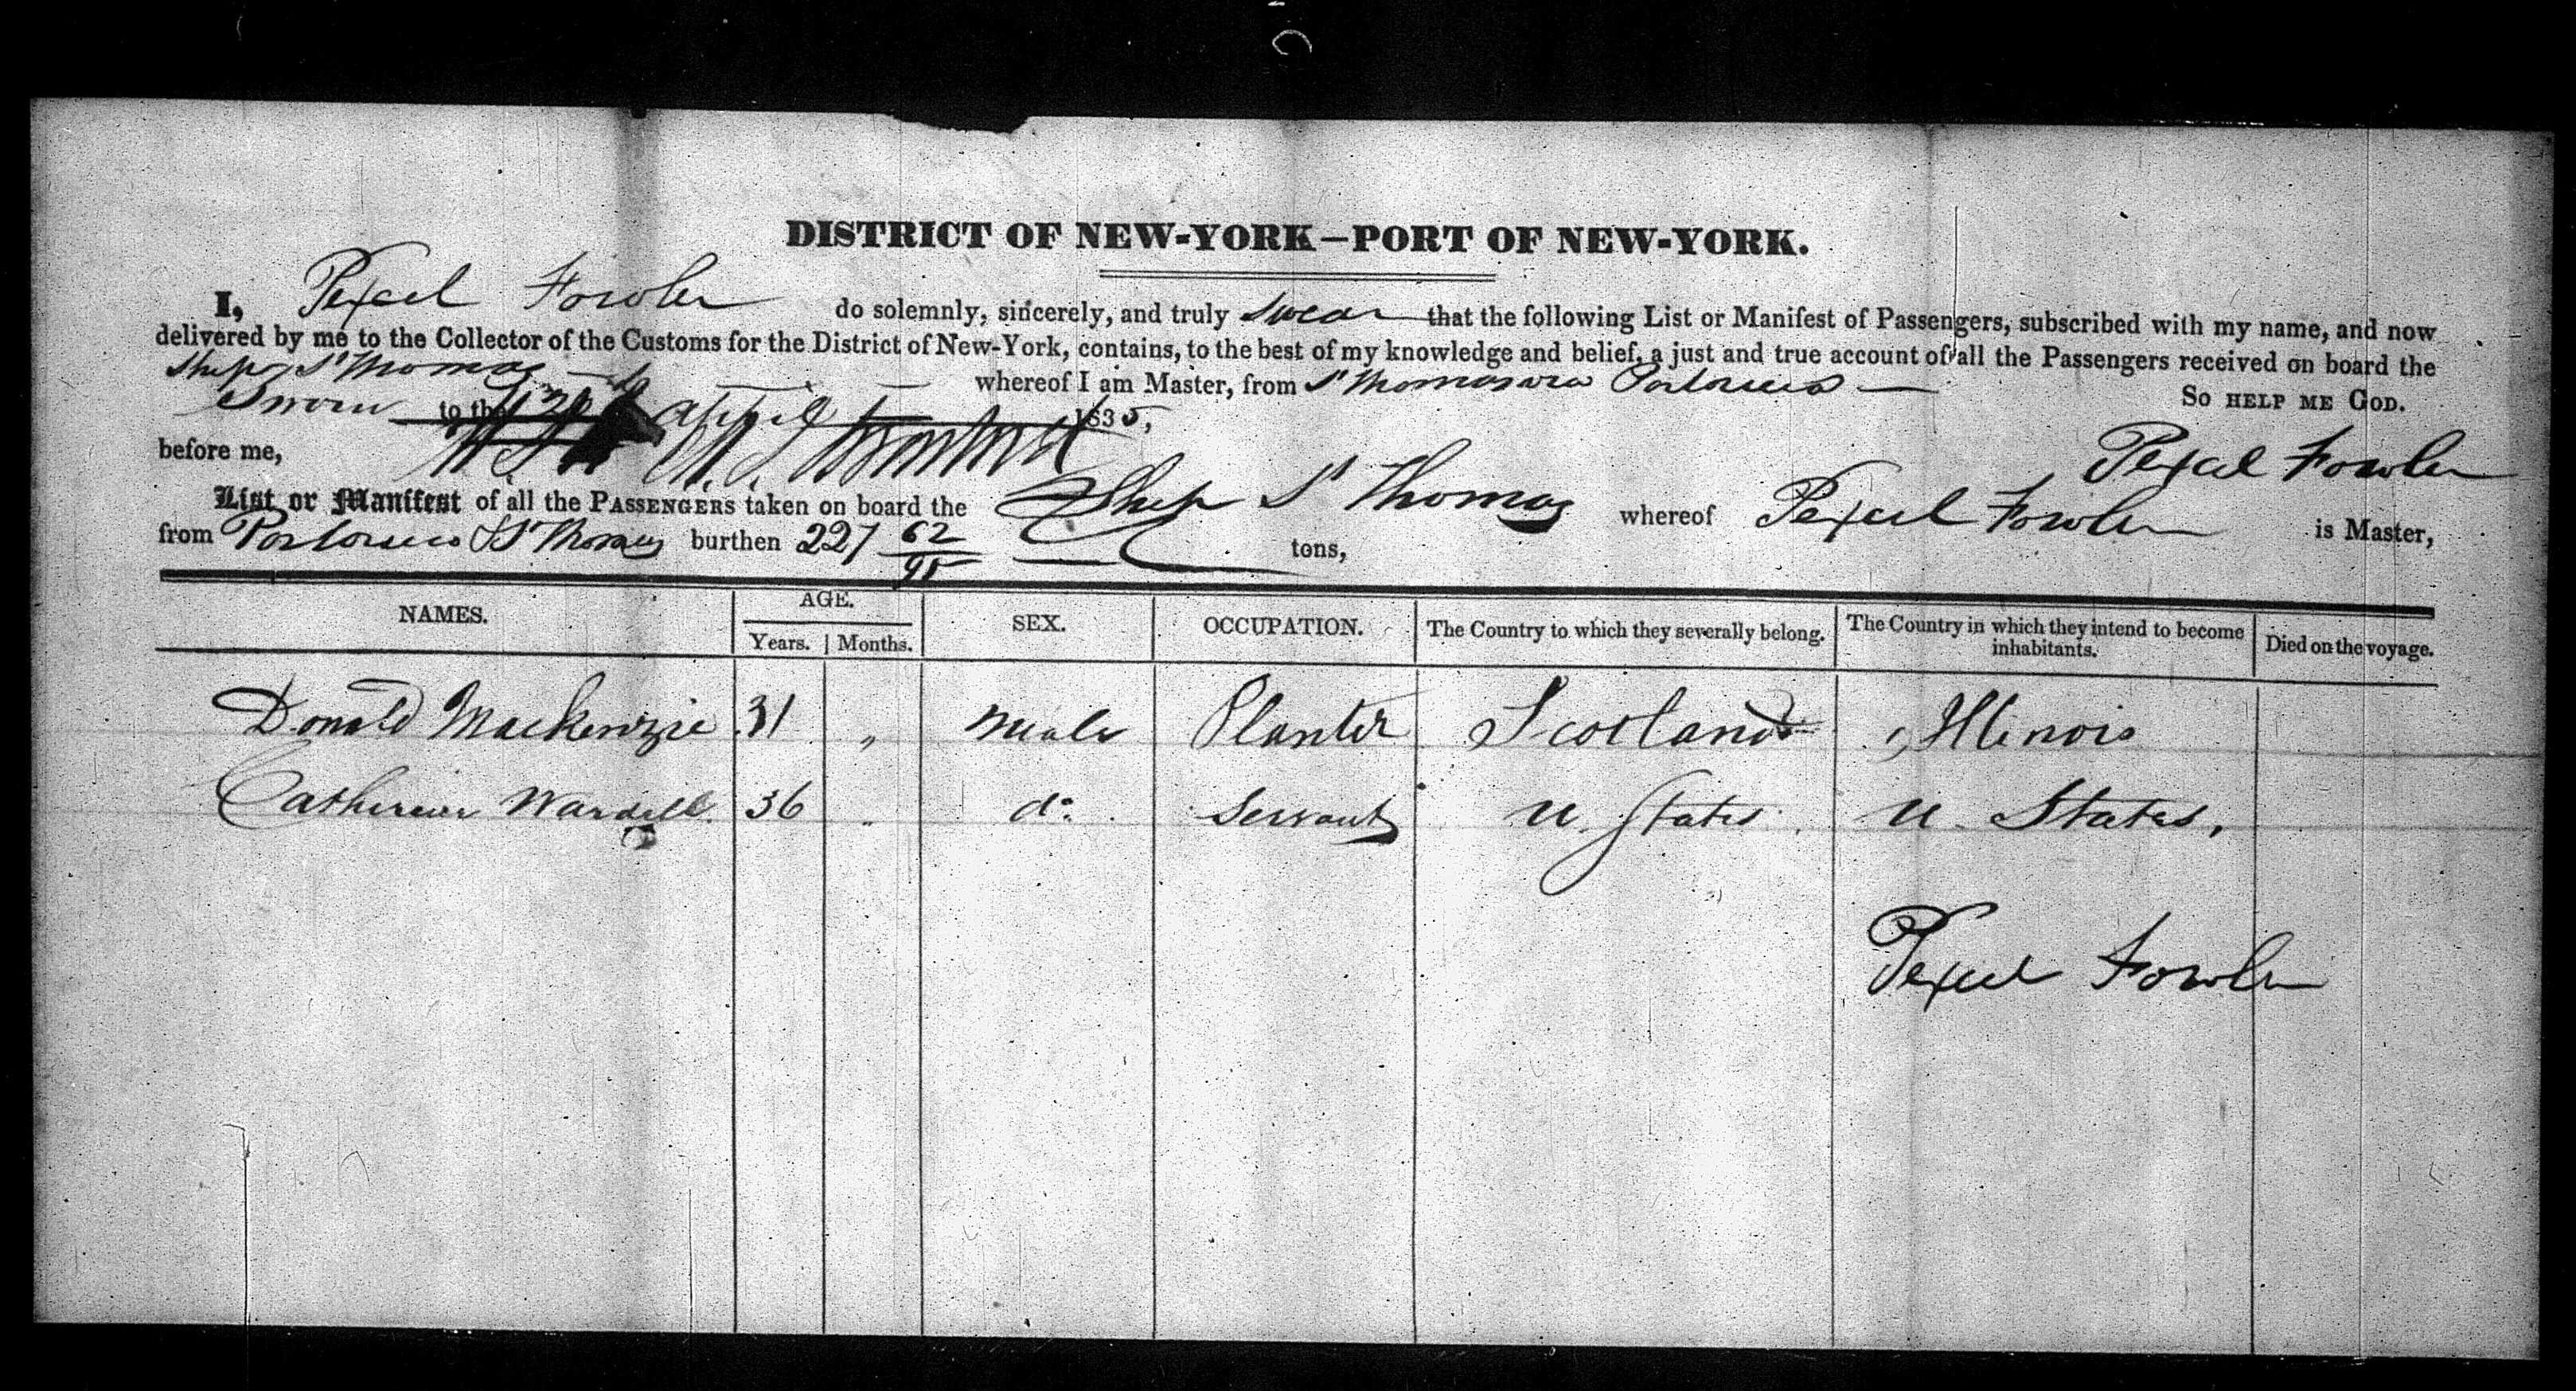 DISTRICT OF NEW-YORK—PORT OF NEW-YORK.
I, Pexcel Fowler do solemnly, sincerely, and truly swear that the following List or Manifest of Passengers, subscribed with my name, and now
delivered by me to the Collector of the Customs for the District of New-York, contains, to the best of my knowledge and belief, a just and true account of all the Passengers received on board the
Ship St Thomas whereof I am Master, from St Thomas via Portorico
So HELP ME GOD.
Sworn to the April 1835,
before me,
Pexcel Fowler
List or Manifest of all the PASSENGERS taken on board the Ship St Thomas whereof Pexcel Fowler is Master,
from Portorico & St Thomas burthen 227 62/95 tons,
NAMES. AGE. SEX. OCCUPATION. The Country to which they severally belong. The Country in which they intend to become inhabitants. Died on the voyage.
Years. Months.
Donald Mackenzie 31 " Male Planter Scotland Illinois
Catherine Wardell. 36 " do. Servant U. States U States.
Pexcel Fowler